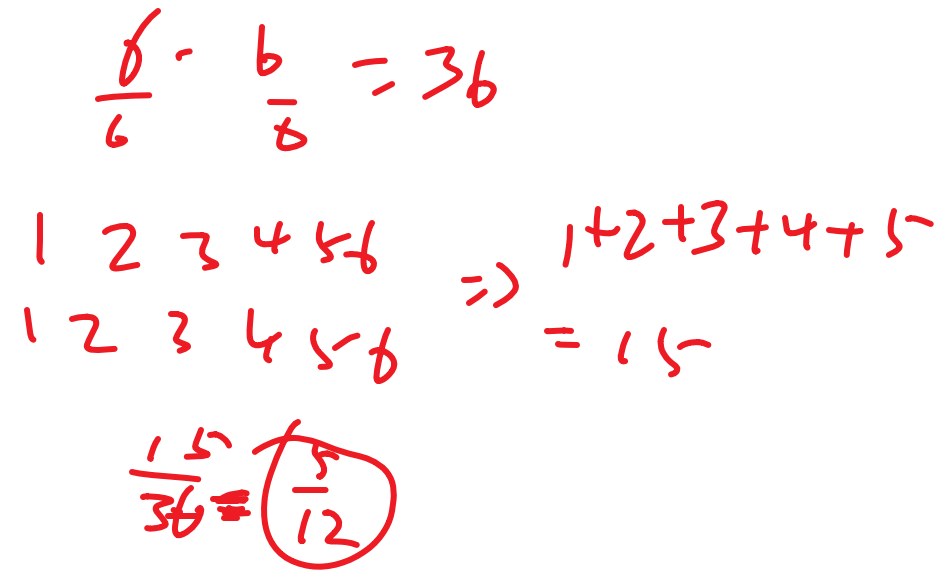 6/6 · 6/6 = 36
1 2 3 4 5 6 => 1+2+3+4+5
1 2 3 4 5 6 = 15
15/36 = 5/12